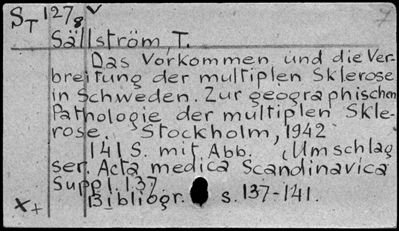 ST 127g V 7
Sällström, T.
Das Vorkommen und die Ver-
breitung der multiplen Sklerose
in Schweden. Zur geographischen
Pathologie der multiplen Skle-
rose. Stockholm, 1942
141 S. mit Abb. (Umschlag
ser. Acta medica Scandinavica
Suppl. 137
Bibliogr. s. 137-141.
x+